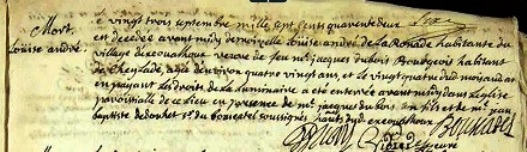 Mort
Loüise andré.
Le vingt trois septembre mille sept cents quarente deux
est decedée avant midy demoizelle Loüise andré de La Ronade habitante du
village d'excouailhoux veuve de feu mr jacques dubois Bourgeois habitant
de Cheylade, agée d'environ quatre vingt ans, et le vingt quatre dud mois and a été
en payant les droits de la Luminaire a été enterrée avant midy dans L'eglise
paroissialle de ce lieu en presence de mr jacques dubois son fils et de mr jean
baptiste de douhet sr du soussignes hants dud